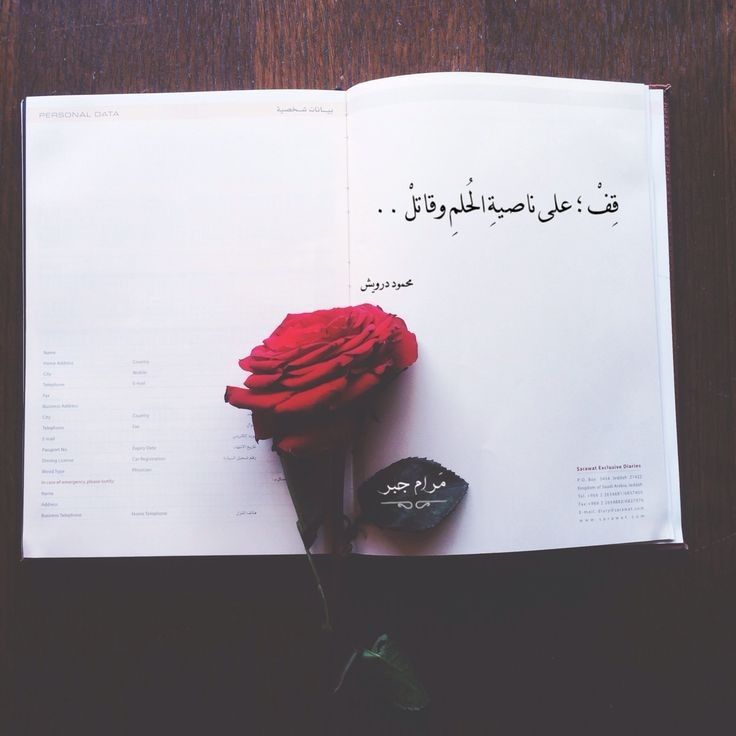 PERSONAL DATA
بيانات شخصية
Name
Home Address Country
City Mobile
Telephone E-mail
Fax
Business Address
City Country
Telephone Fax
E-mail
Passport No. Expiry Date
Driving License Car Registration
Blood Type Physician
In case of emergency, please notify:
Name
Address
Business Telephone Home Telephone
هاتف المنزل
قِفْ ؛ على ناصيةِ الحُلمِ وقاتلْ . .
محمود درويش
مَرام جبر
Sarawat Exclusive Diaries
P.O. Box 5404 Jeddah 21422
Kingdom of Saudi Arabia, Jeddah
www.sarawat.com